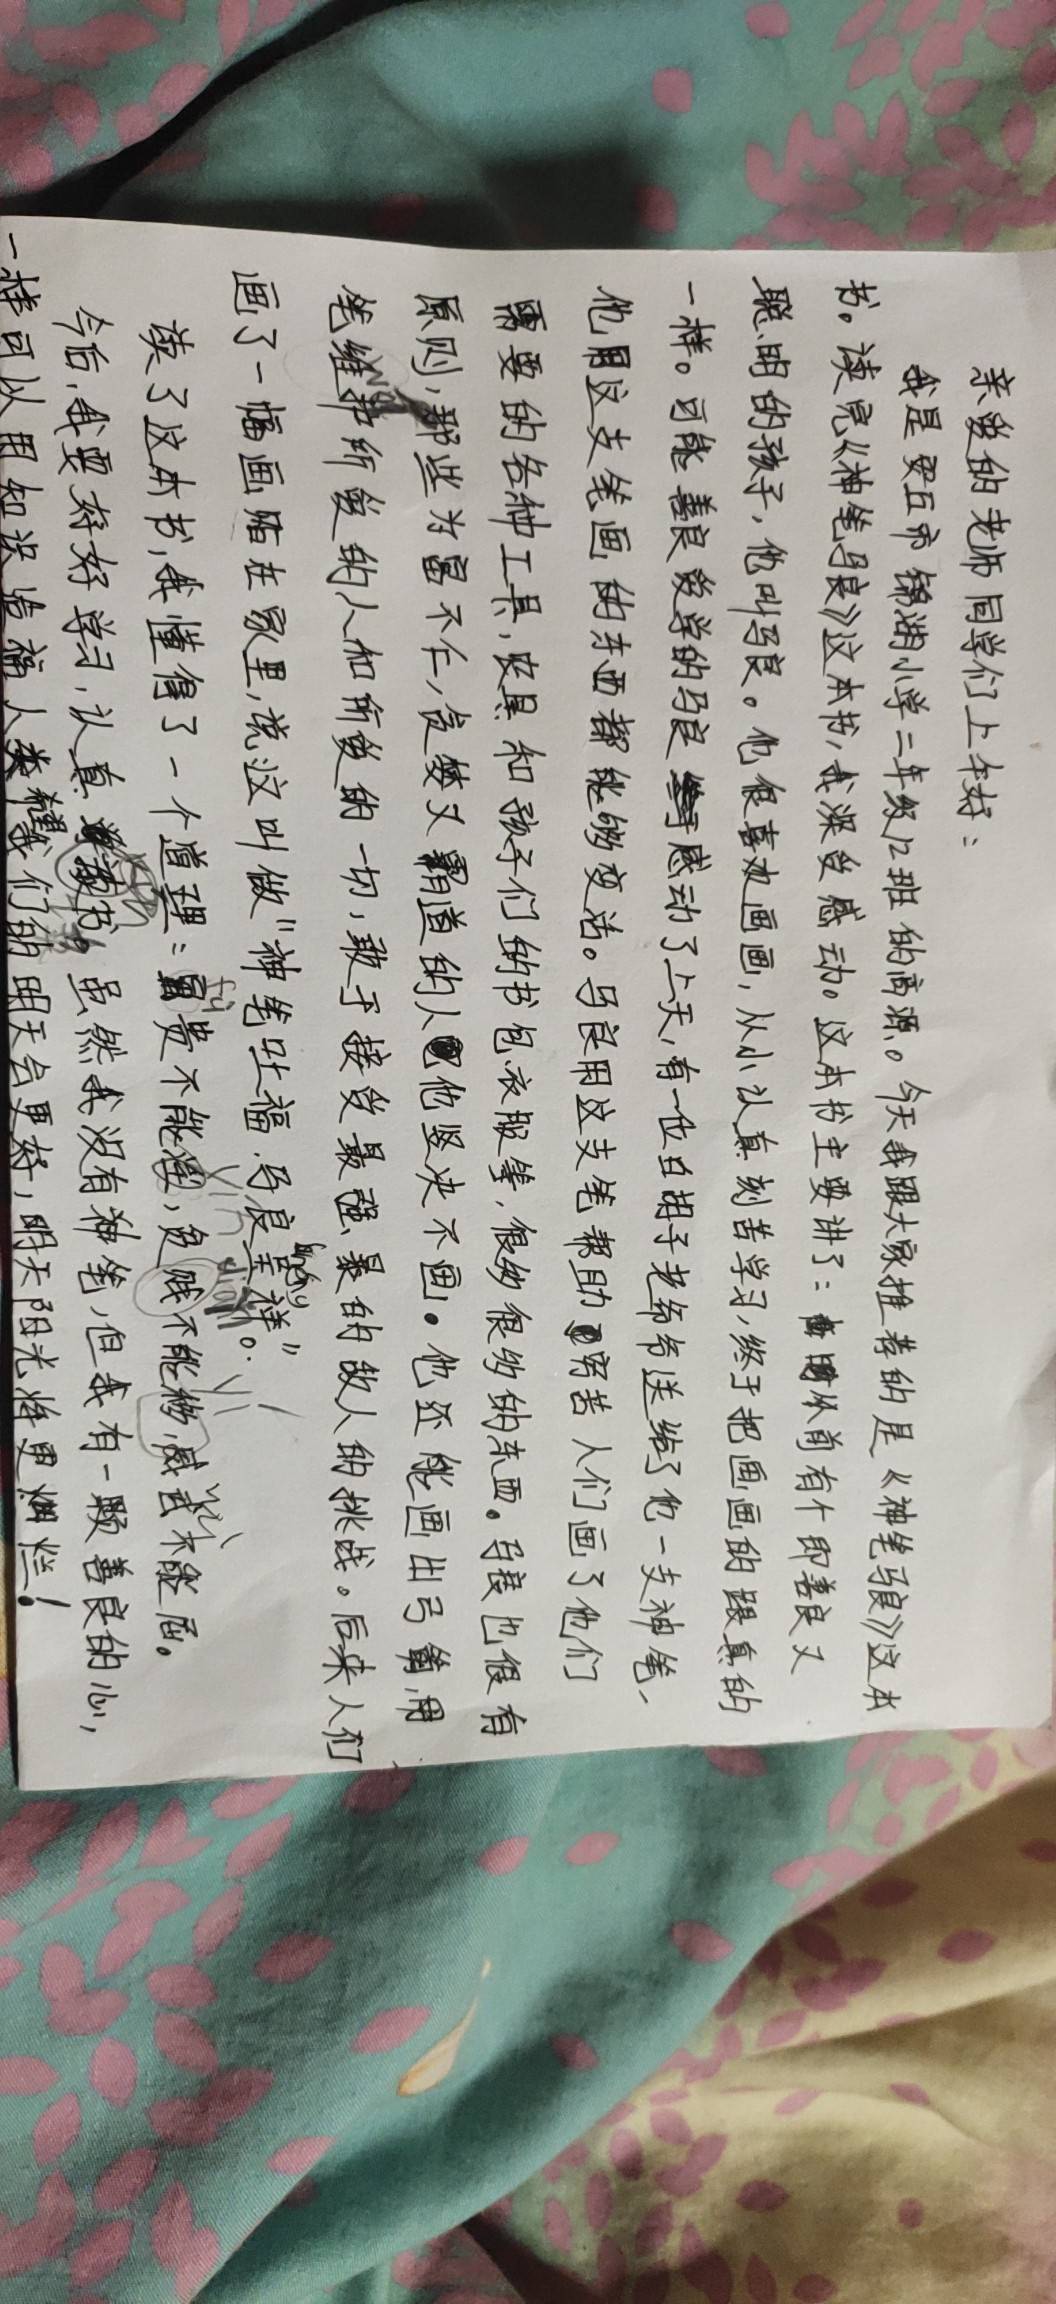 亲爱的老师同学们上午好：
我是安丘市锦湖小学二年级12班的高源。今天我跟大家推荐的是《神笔马良》这本
书。读完《神笔马良》这本书，我深受感动。这本书主要讲了：从前有个即善良又
聪明的孩子，他叫马良。他很喜欢画画，从小认真刻苦学习，终于把画画的跟真的
一样。可能善良爱学的马良感动了上天，有一位白胡子老爷爷送给了他一支神笔、
他用这支笔画的东西都能够变活。马良用这支笔帮助穷苦人们画了他们
需要的各种工具，农具和孩子们的书包、衣服等，很多很多的东西。马良也很有
原则，那些为富不仁，贪婪又霸道的人他坚决不画。他还能画出弓箭，用
笔维护所爱的人和所爱的一切，敢于接受最强、最的敌人的挑战。后来人们
画了一幅画贴在家里，说这叫做“神笔吐福、马良呈祥”。
chéng
读了这本书，我懂得了一个道理：富贵不能淫，贫贱不能移，威武不能屈。
fù
yín
jiàn
yí
wēi
今后，我要好好学习，认真读书。虽然我没有神笔，但我有一颗善良的心，
一样可以用知识造福人类，我们的明天会更好，明天阳光将更灿烂！